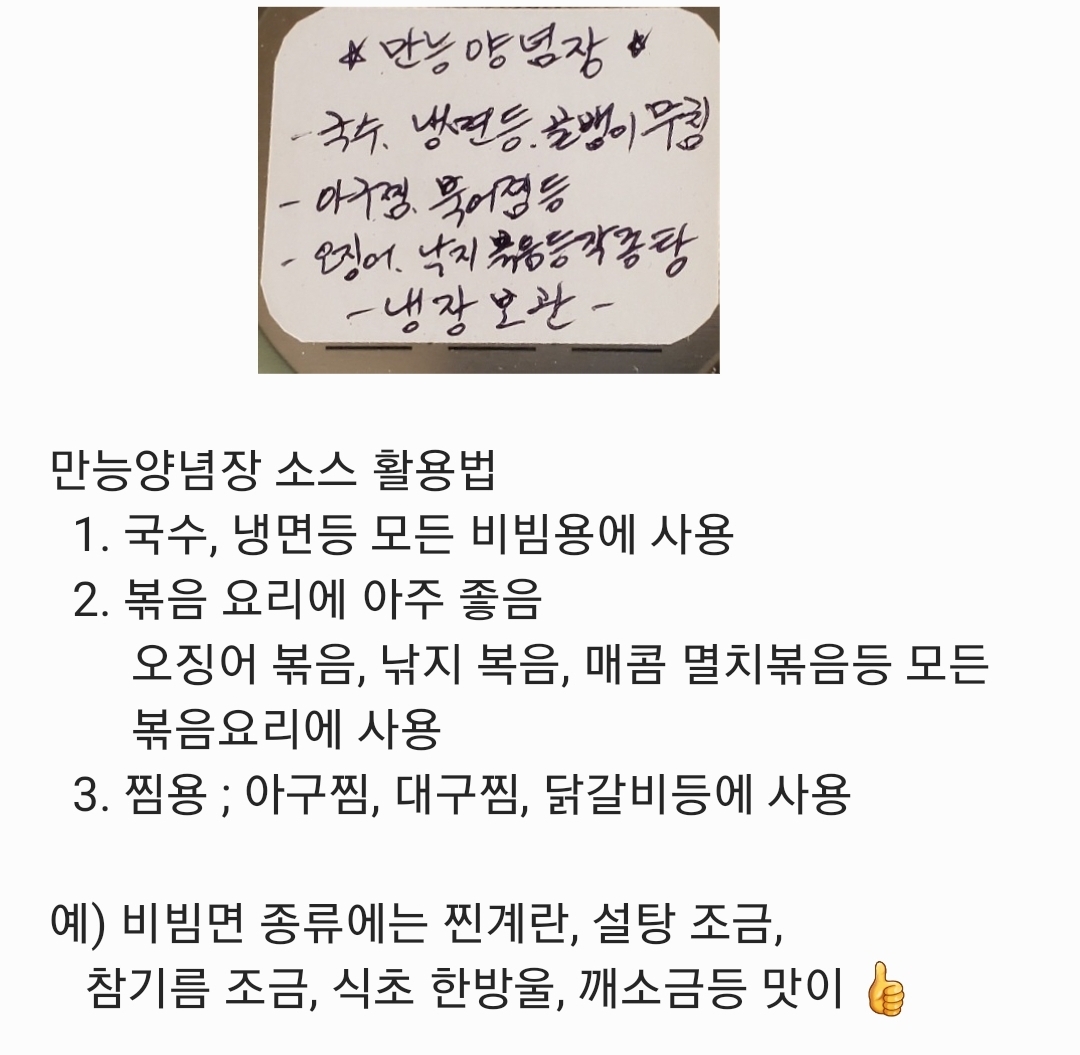 * 만능양념장 *
- 국수. 냉면등. 골뱅이무침
- 아구찜. 북어찜등
- 오징어. 낙지볶음등각종탕
- 냉장보관 -
만능양념장 소스 활용법
1. 국수, 냉면등 모든 비빔용에 사용
2. 볶음 요리에 아주 좋음
오징어 볶음, 낚지 복음, 매콤 멸치볶음등 모든
볶음요리에 사용
3. 찜용 ; 아구찜, 대구찜, 닭갈비등에 사용
예) 비빔면 종류에는 찐계란, 설탕 조금,
참기름 조금, 식초 한방울, 깨소금등 맛이 👍